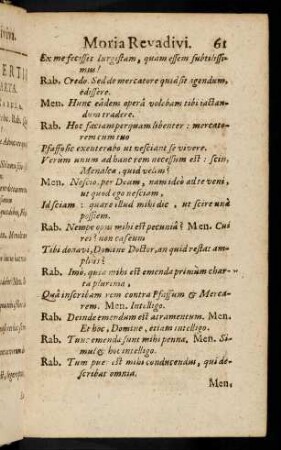 Moria Revadivi. 61
Ex me fecisset iurgistam, quam essem subtilissi-
mus!
Rab. Credo. Sed de mercatore quid sit agendum,
edissere.
Men. Hunc eâdem operâ volebam tibi iactan-
dum tradere.
Rab. Hoc faciam perquam libenter: mercato-
rem cum suo
Pfaffo sic exenterabo ut nesciant se vivere.
Verum unum ad hanc rem necessum est: scin,
Menalca, quid velim?
Men. Nescio, per Deam, nam ideò ad te veni,
ut quod ego nesciam,
Id sciam: quare illud mihi dic, ut scire unà
possiem.
Rab. Nempe opus mihi est pecuniâ? Men. Cui
rei? non caseum
Tibi donavi, Domine Doctor, an quid restat am-
plius?
Rab. Imo, quia mihi est emenda primùm char-
ta plurima,
Quâ inscribam rem contra Pfaffum & Merca-
rem. Men. Intelligo.
Rab. Deinde emendum est atramentum. Men.
Et hoc, Domine, etiam intelligo.
Rab. Tunc emenda sunt mihi penna. Men. Si-
mul & hoc intelligo.
Rab. Tum puer est mihi conducendus, qui de-
scribat omnia.
Men.